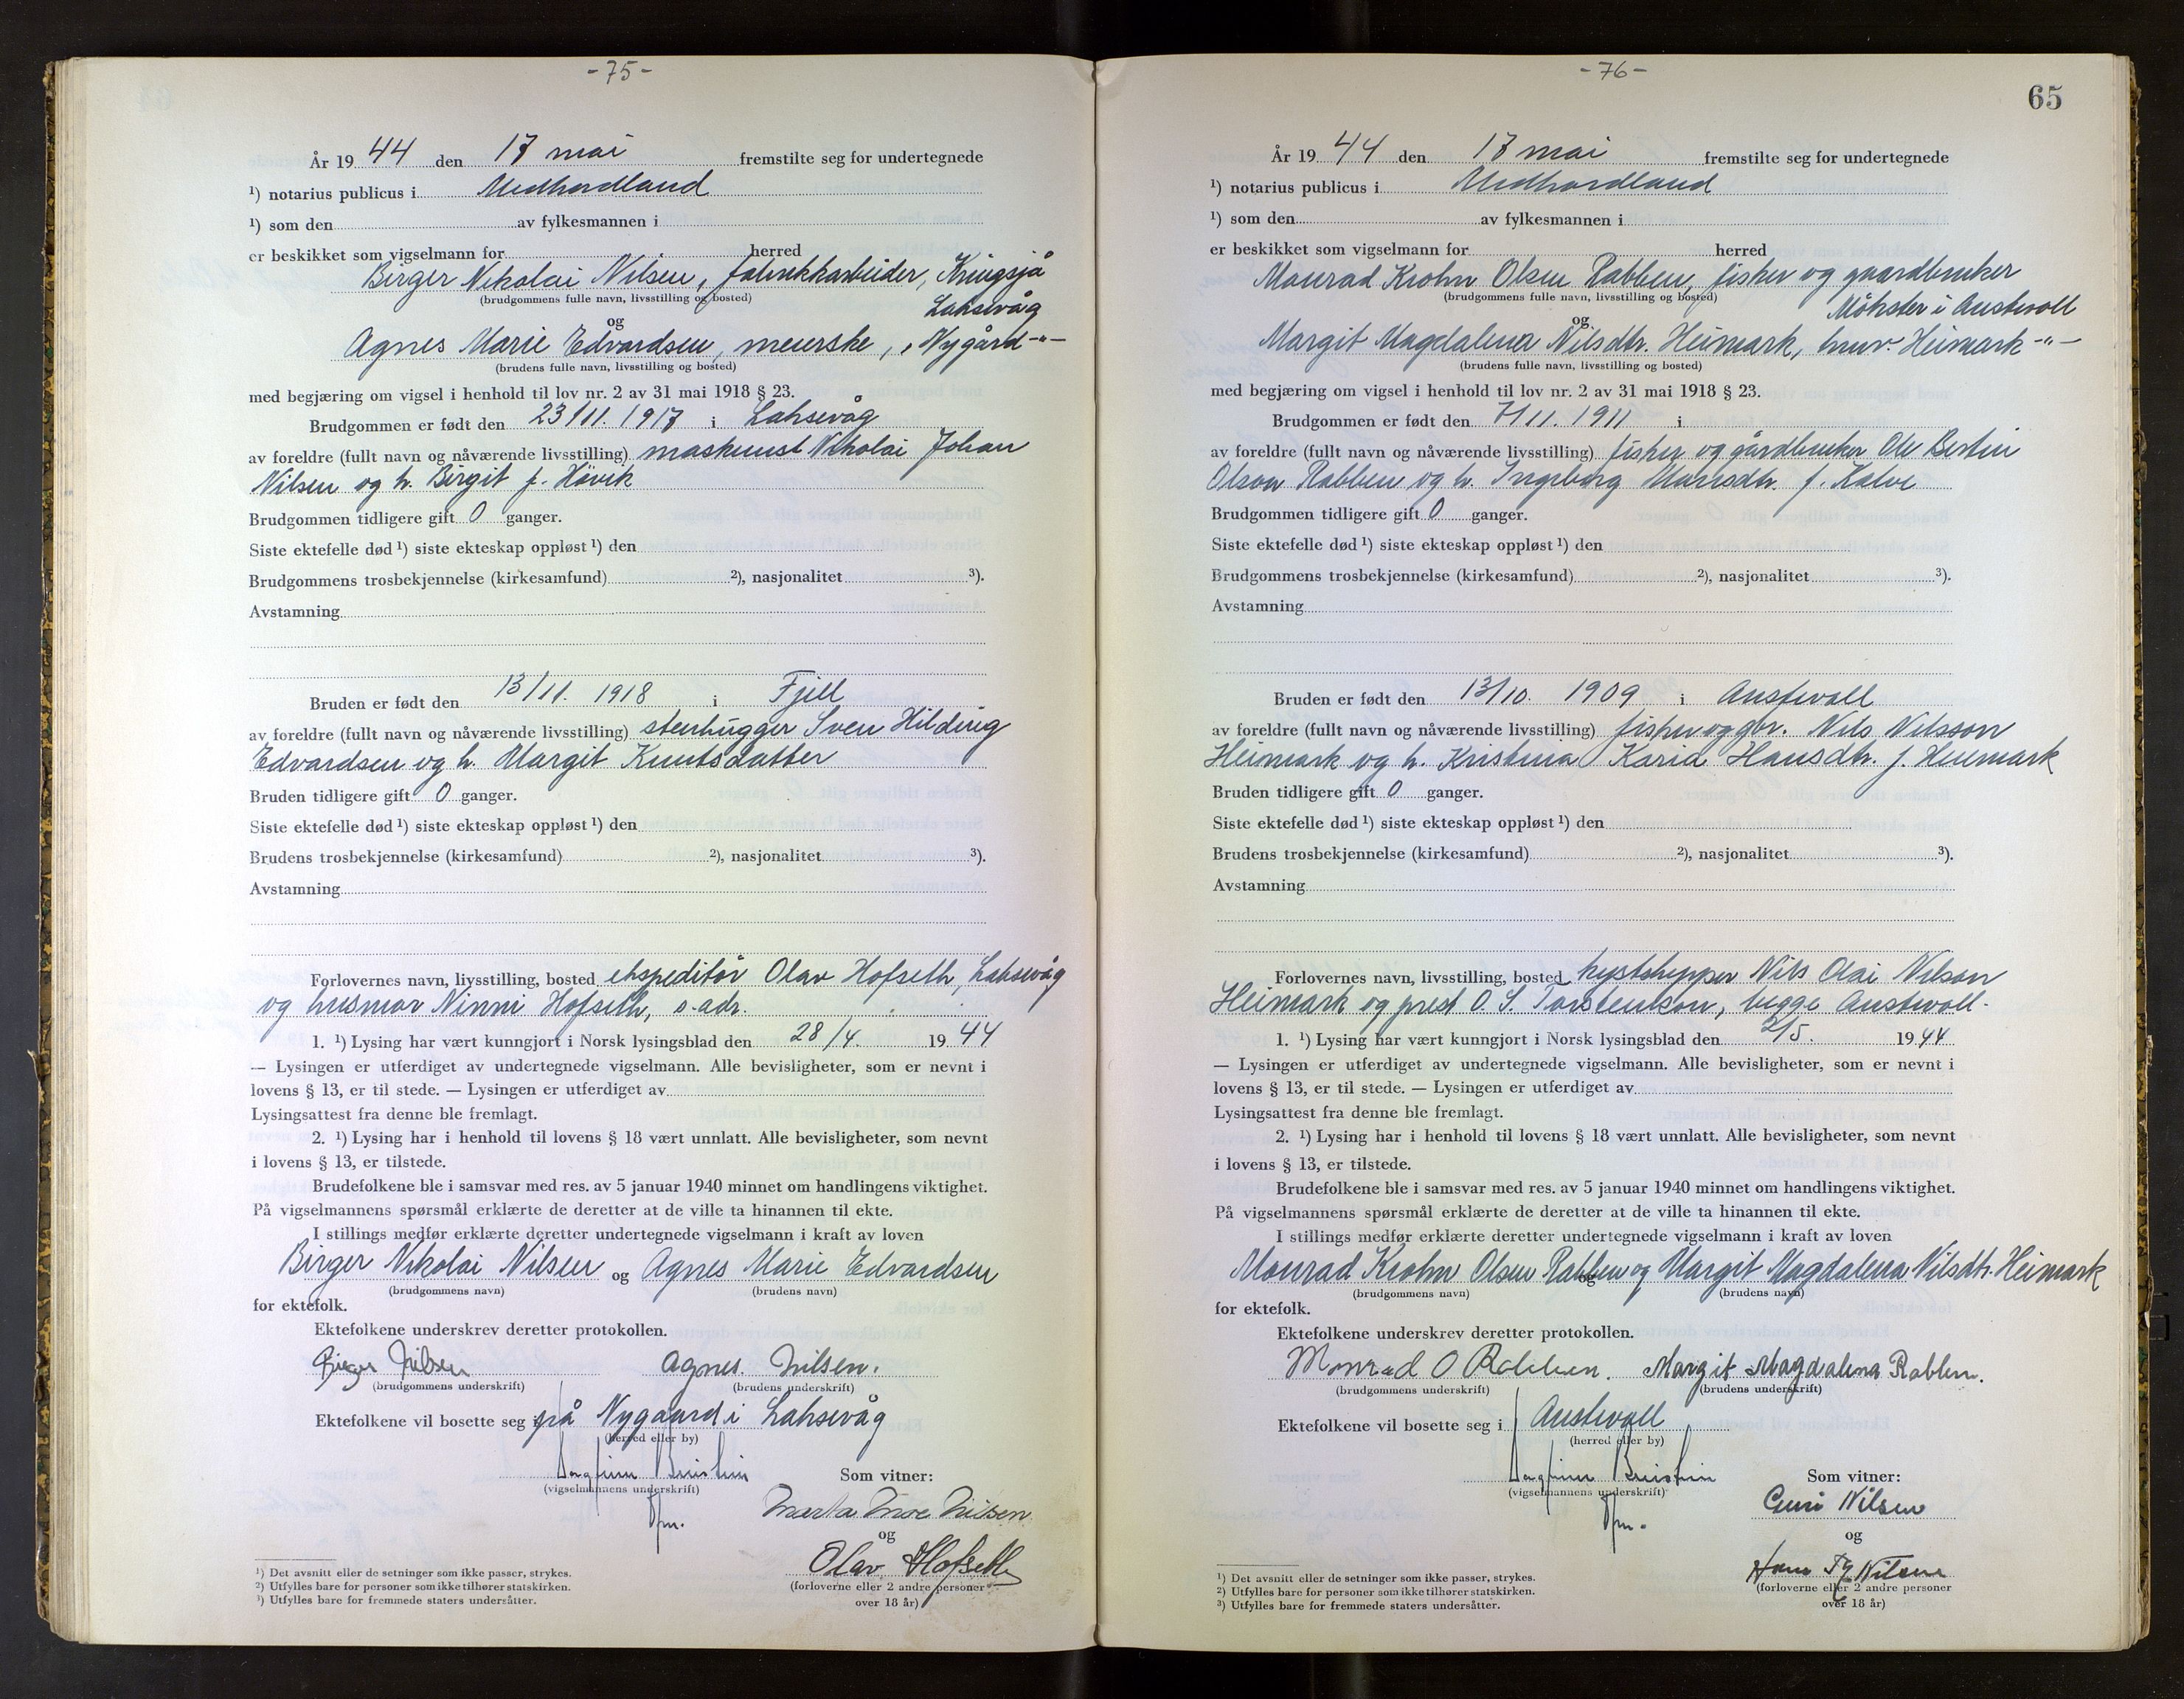 -75-
År 19 44 den 17 mai fremstilte seg for undertegnede
¹) notarius publicus i Midhordland
¹) som den av fylkesmannen i
er beskikket som vigselmann for herred
Birger Nikolai Nilsen, fabrikkarbeider, Kringsjå
(brudgommens fulle navn, livsstilling og bosted)
Laksevåg
og
Agnes Marie Edvardsen, meierske, Nygård -"-
(brudens fulle navn, livsstilling og bosted)
med begjæring om vigsel i henhold til lov nr. 2 av 31 mai 1918 § 23.
Brudgommen er født den 23/11. 1917 i Laksevåg
av foreldre (fullt navn og nåværende livsstilling) maskinist Nikolai Johan
Nilsen og h. Birgit f. Hövik
Brudgommen tidligere gift 0 ganger.
Siste ektefelle død ¹) siste ekteskap oppløst ¹) den
Brudgommens trosbekjennelse (kirkesamfund) ²), nasjonalitet ³).
Avstamning
Bruden er født den 13/11. 1918 i Fjell
av foreldre (fullt navn og nåværende livsstilling) stenhugger Sven Hilding
Edvardsen og h. Margit Knutsdatter
Bruden tidligere gift 0 ganger.
Siste ektefelle død ¹) siste ekteskap oppløst ¹) den
Brudens trosbekjennelse (kirkesamfund) ²), nasjonalitet ³).
Avstamning
Forlovernes navn, livsstilling, bosted ekspeditör Olav Hofseth, Laksevåg
og husmor Ninni Hofseth, s. adr.
1. ¹) Lysing har vært kunngjort i Norsk lysingsblad den 28/4. 19 44
— Lysingen er utferdiget av undertegnede vigselmann. Alle bevisligheter, som er nevnt i
lovens § 13, er til stede. — Lysingen er utferdiget av
Lysingsattest fra denne ble fremlagt.
2. ¹) Lysing har i henhold til lovens § 18 vært unnlatt. Alle bevisligheter, som nevnt
i lovens § 13, er tilstede.
Brudefolkene ble i samsvar med res. av 5 januar 1940 minnet om handlingens viktighet.
På vigselmannens spørsmål erklærte de deretter at de ville ta hinannen til ekte.
I stillings medfør erklærte deretter undertegnede vigselmann i kraft av loven
Birger Nikolai Nilsen og Agnes Marie Edvardsen
(brudgommens navn) (brudens navn)
for ektefolk.
Ektefolkene underskrev deretter protokollen.
Birger Nilsen Agnes. Nilsen.
(brudgommens underskrift) (brudens underskrift)
Ektefolkene vil bosette seg i på Nygaard i Laksevåg
(herred eller by)
(vigselmannens underskrift)
Som vitner:
Marta Moe Nilsen
og
Olav Hofseth
(forloverne eller 2 andre personer
over 18 år)
¹) Det avsnitt eller de setninger som ikke passer, strykes.
²) Utfylles bare for personer som ikke tilhører statskirken.
³) Utfylles bare for fremmede staters undersåtter.
-76-
65
År 19 44 den 17 mai fremstilte seg for undertegnede
¹) notarius publicus i Midhordland
¹) som den av fylkesmannen i
er beskikket som vigselmann for herred
Monrad Krohn Olsen Rabben, fisker og gaardbruker
(brudgommens fulle navn, livsstilling og bosted)
Møkster i Austevoll
og
Margit Magdalena Nilsdtr. Heimark, husv. Heimark -"-
(brudens fulle navn, livsstilling og bosted)
med begjæring om vigsel i henhold til lov nr. 2 av 31 mai 1918 § 23.
Brudgommen er født den 7/11. 1911 i
av foreldre (fullt navn og nåværende livsstilling) fisker og gårdbruker Ole Bertin
Olson Rabben og h. Ingeborg Hansdtr. f. Kalve
Brudgommen tidligere gift 0 ganger.
Siste ektefelle død ¹) siste ekteskap oppløst ¹) den
Brudgommens trosbekjennelse (kirkesamfund) ²), nasjonalitet ³).
Avstamning
Bruden er født den 13/10. 1909 i Austevoll
av foreldre (fullt navn og nåværende livsstilling) fisker og gbr. Nils Nilsson
Heimark og h. Kristina Karia Hansdtr. f. Heimark
Bruden tidligere gift 0 ganger.
Siste ektefelle død ¹) siste ekteskap oppløst ¹) den
Brudens trosbekjennelse (kirkesamfund) ²), nasjonalitet ³).
Avstamning
Forlovernes navn, livsstilling, bosted kystskipper Nils Olai Nilson
Heimark og prest O. S. Torstenson, begge Austevoll.
1. ¹) Lysing har vært kunngjort i Norsk lysingsblad den 2/5. 19 44
— Lysingen er utferdiget av undertegnede vigselmann. Alle bevisligheter, som er nevnt i
lovens § 13, er til stede. — Lysingen er utferdiget av
Lysingsattest fra denne ble fremlagt.
2. ¹) Lysing har i henhold til lovens § 18 vært unnlatt. Alle bevisligheter, som nevnt
i lovens § 13, er tilstede.
Brudefolkene ble i samsvar med res. av 5 januar 1940 minnet om handlingens viktighet.
På vigselmannens spørsmål erklærte de deretter at de ville ta hinannen til ekte.
I stillings medfør erklærte deretter undertegnede vigselmann i kraft av loven
Monrad Krohn Olsen Rabben og Margit Magdalena Nilsdtr. Heimark
(brudgommens navn) (brudens navn)
for ektefolk.
Ektefolkene underskrev deretter protokollen.
Monrad O Rabben. Margit Magdalena Rabben.
(brudgommens underskrift) (brudens underskrift)
Ektefolkene vil bosette seg i Austevoll
(herred eller by)
(vigselmannens underskrift)
Som vitner:
Guri Nilsen
og
Hans Nilsen
(forloverne eller 2 andre personer
over 18 år)
¹) Det avsnitt eller de setninger som ikke passer, strykes.
²) Utfylles bare for personer som ikke tilhører statskirken.
³) Utfylles bare for fremmede staters undersåtter.